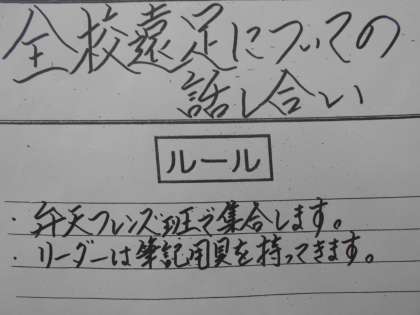 全校遠足についての
話し合い
ルール
・弁天フレンズ班で集合します。
・リーダーは筆記用具を持ってきます。